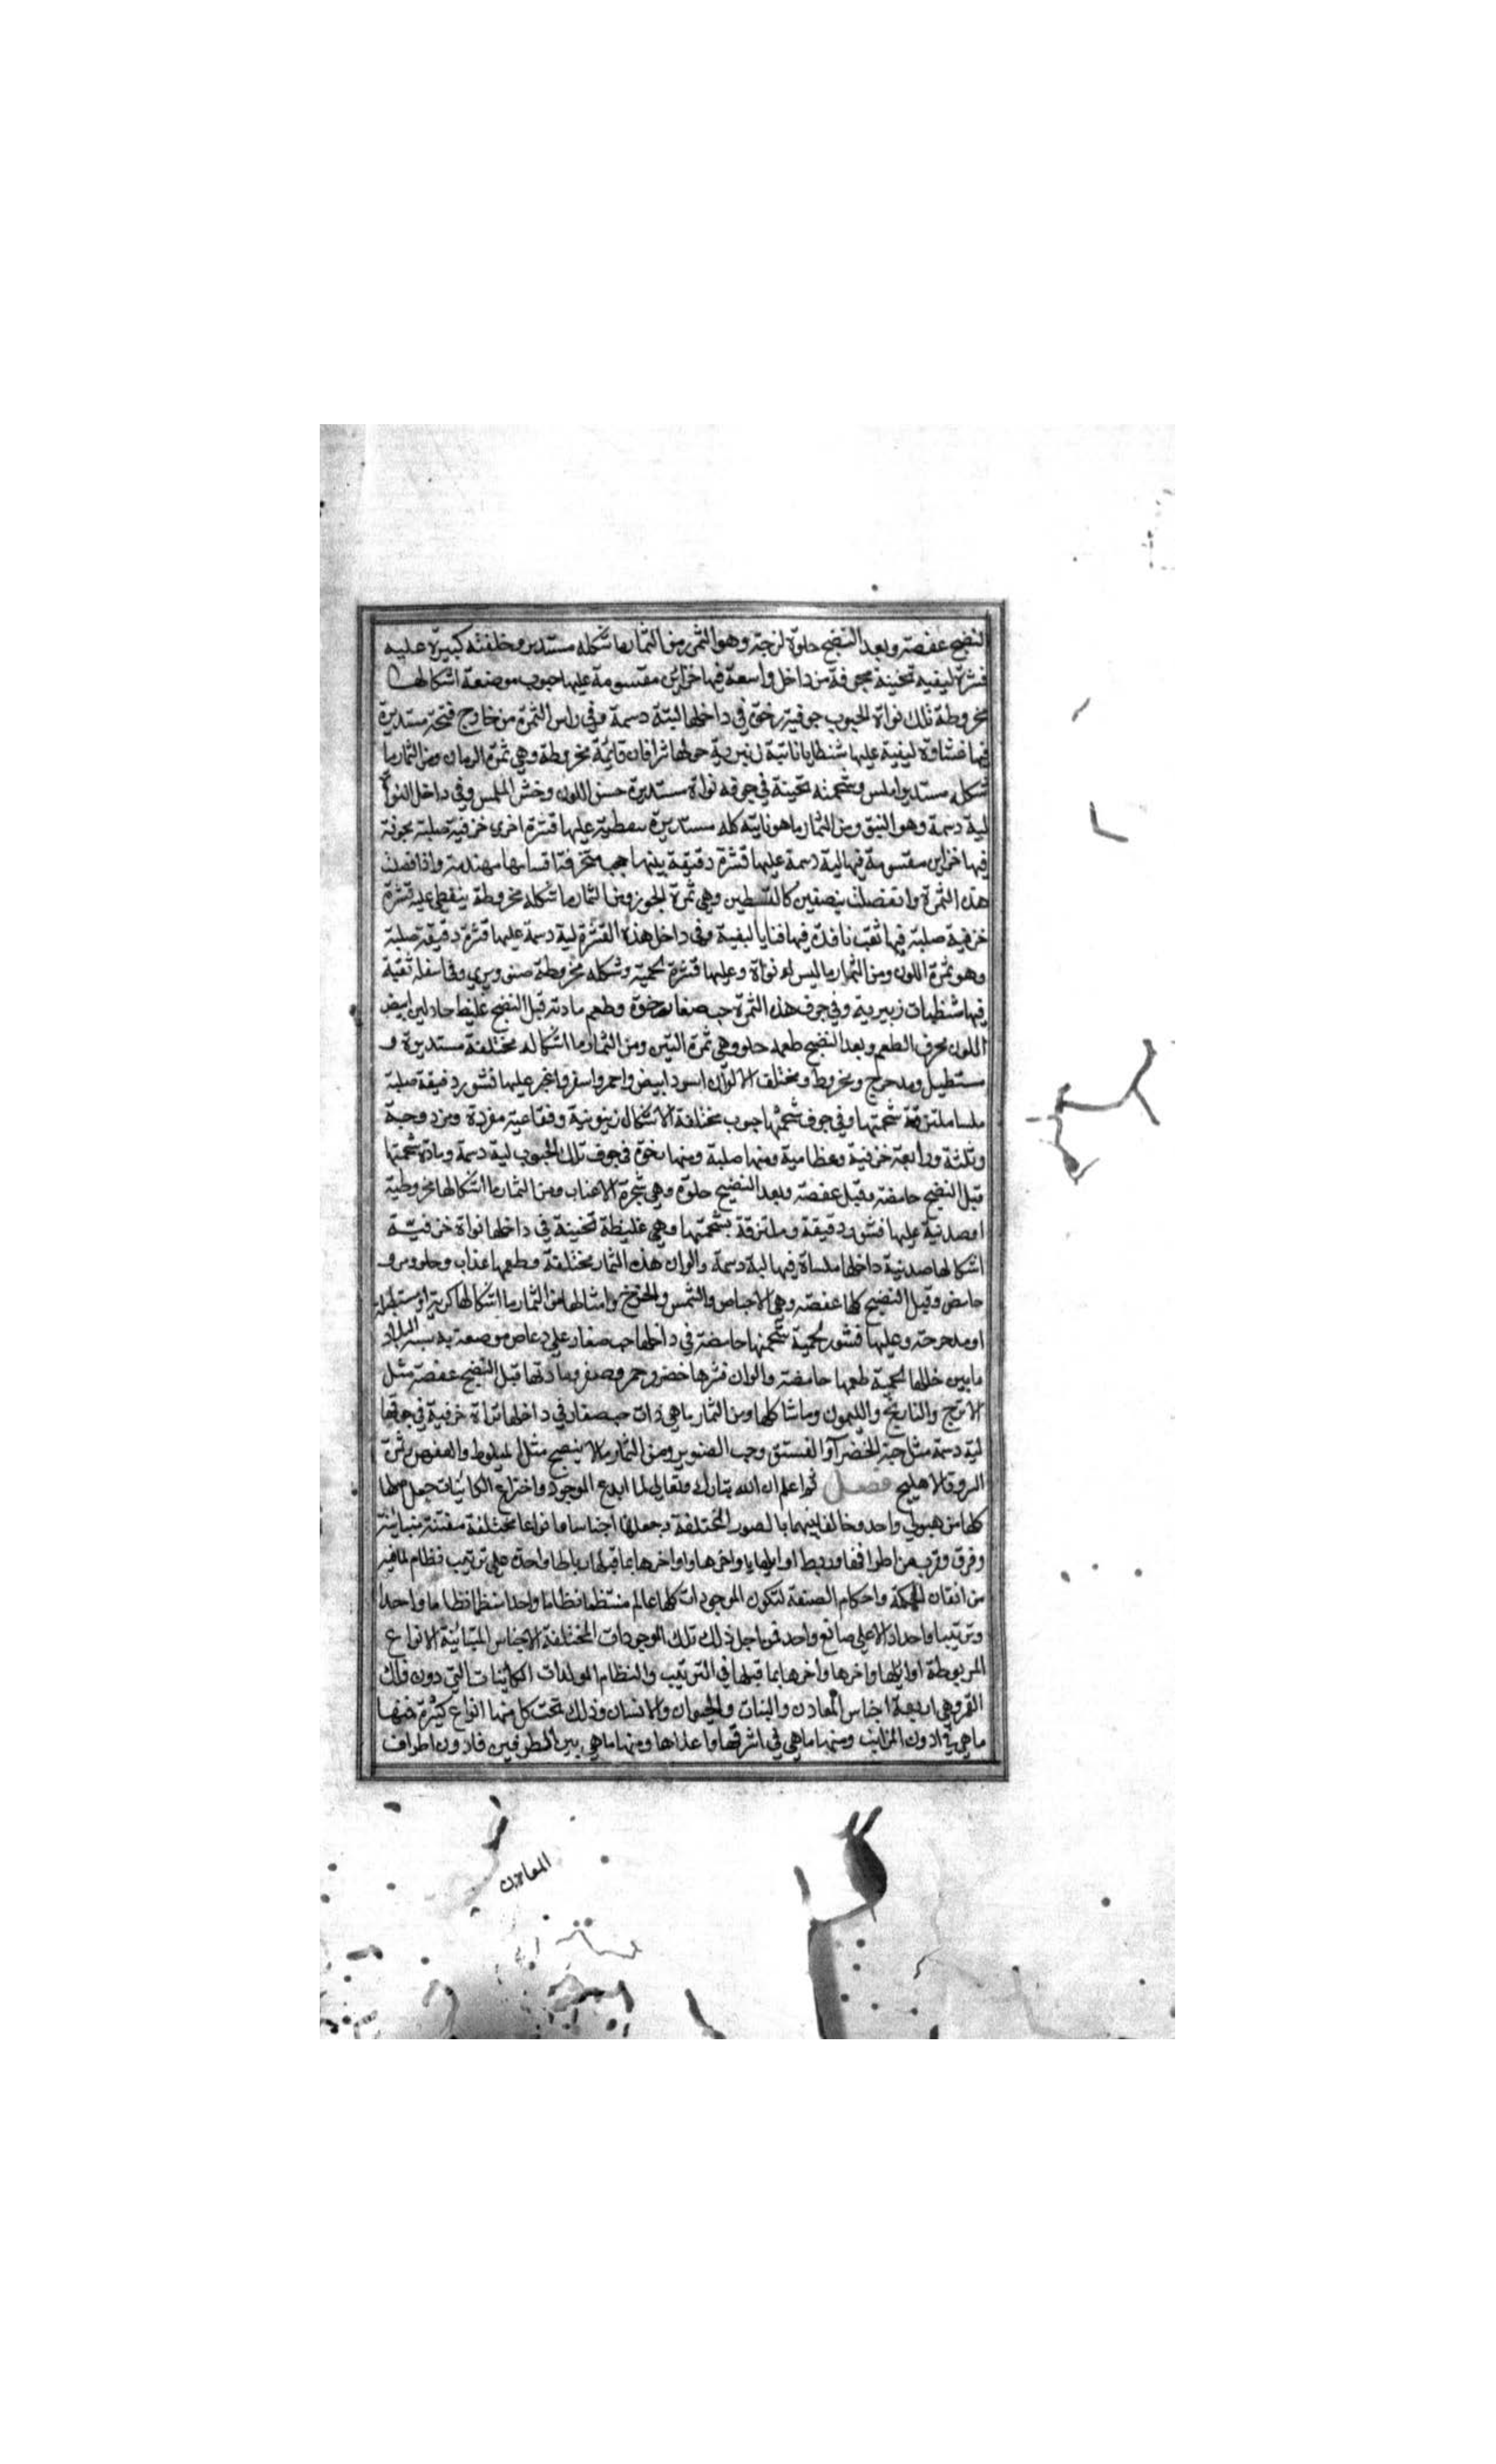 النضج عفصة وبعد النضج حلوة لزجة وهو التمر ومن الثمار ما شكله مستدير وخلفته كبيرة عليه
قشرة ليفية ثخينة مجوفة من داخل واسعة فيها خزاين مقسومة عليها حبوب موضعة اشكالها
مخروطة تلك نواة الحبوب جوفية رخوة في داخلها لبتة دسمة وفي راس الثمرة من خارج فتحة مستديرة
فيها غشاوة ليفية عليها شظايا ناتية زيبرية حملها شرافات قايمة مخروطة وهي ثمرة الرمان ومن الثمار ما
شكله مستدير املس وشحمته ثخينة في جوفه نواة مستديرة حسن اللون وخشن الملمس وفي داخل النواة
لبة دسمة وهو النبق ومن الثمار ما هو نايته كله مستديرة مغطية عليها قشرة اخرى خزفية صلبة مجوفة
فيها خزاين مقسومة فيها لبة دسمة عليها قشرة دقيقة بينها حجب منخرفة اقسامها مهندمة واذا فصلت
هذه الثمرة وانفصلت بنصفين كالقسطين وهي ثمرة الجوز ومن الثمار ما شكله مخروطة ينغطي عليه قشرة
خزفية صلبة فيها ثقب نافذة فيها فنايا ليفية وفي داخل هذه القشرة لبة دسمة عليها قشرة دقيقة صلبة
وهو ثمرة اللوز ومن الثمار ما ليس له نواة وعليها قشرة لحمية وشكله مخروطة صنوبري وفي اسفله ثقبة
فيها شظيات زبيرية وفي جوف هذه الثمرة حب صغار رخوة وطعم مادته قبل النضج غليظ حاد لبن ابيض
اللون محرف الطعم وبعد النضج طعمه حلو وهي ثمرة التين ومن الثمار ما اشكاله مختلفة مستديرة و
مستطيل ومدحرج ومخروط ومختلف الالوان اسود ابيض واحمر واصفر واغبر عليها قشور دقيقة صلبة
ملسا ملتزقة شحمتها وفي جوف شحمتها حبوب مختلفة الاشكال زيتونية وفقاعية مفردة ومزدوجة
وثلثة ورابعة خزفية وعظامية ومنها صلبة ومنها رخوة في جوف تلك الحبوب لبة دسمة ومادة شحمتها
قبل النضج حامضة وقبل عفصة وبعد النضج حلوة وهي شجرة الاعناب ومن الثمار ما اشكالها مخروطية
او صدنية عليها قشور دقيقة وملتزقة بشحمتها وهي غليظة ثخينة في داخلها نواة خزفية
اشكالها صدنية داخلها ملساة فيها لبة دسمة والوان هذه الثمار مختلفة وطعمها عذاب وحلو ومر و
حامض وقبل النضج كلها عفصة وهي الاجاص والمشمس والخوخ وامثالها من الثمار ما اشكالها كرية او مستطيلة
او مدحرجة وعليها قشور لحمية شحمتها حامضة في داخلها حب صغار على دعاص موضعة
ما بين خللها لحمية طعمها حامضة والوان قشرها خضر وحمر وصفر ومادتها قبل النضج عفصة مثل
الاترج والنارنج والليمون وما شاكلها ومن الثمار ما هي ذات حب صغار في داخلها نواة خزفية في جوفها
لبة دسمة مثل حبة الخضرآ والفستق وحب الصنوبر ومن الثمار ما لا ينضج مثل البلوط والعفص وثمرة
السرو والاهليج فصل ثم اعلم ان الله تبارك وتعالى لما ابدع الموجود واخترع الكائنات جعل اصلها
كلها من هيولي واحد وخالف بينهما بالصور المختلفة وجعلها اجناسا وانواعا مختلفة مفتنة متباينة
وفرق وقرب من اطرافها وربط اوايلها باواخرها واواخرها بما قبلها رباطا واحدة على ترتيب ونظام لما فيه
من اتقان الحكمة واحكام الصنعة لتكون الموجودات كلها عالم منتظما نظاما واحدا منظما نظاما واحدا
وترتيبا واحدا دالا على صانع واحد فمن اجل ذلك تلك الموجودات المختلفة الاجناس المتباينة الانواع
المربوطة اوايلها واخرها واخرها بما قبلها في الترتيب والنظام المولدات الكائينات التي دون فلك
القمر وهي اربعة اجناس المعادن والنبات والحيوان والانسان وذلك تحت كل منها انواع كثيرة فمنها
ما هي في ادون المراتب ومنها ما هي في اشرفها واعلاها ومنها ما هي بين الطرفين فادون اطراف
المعادن